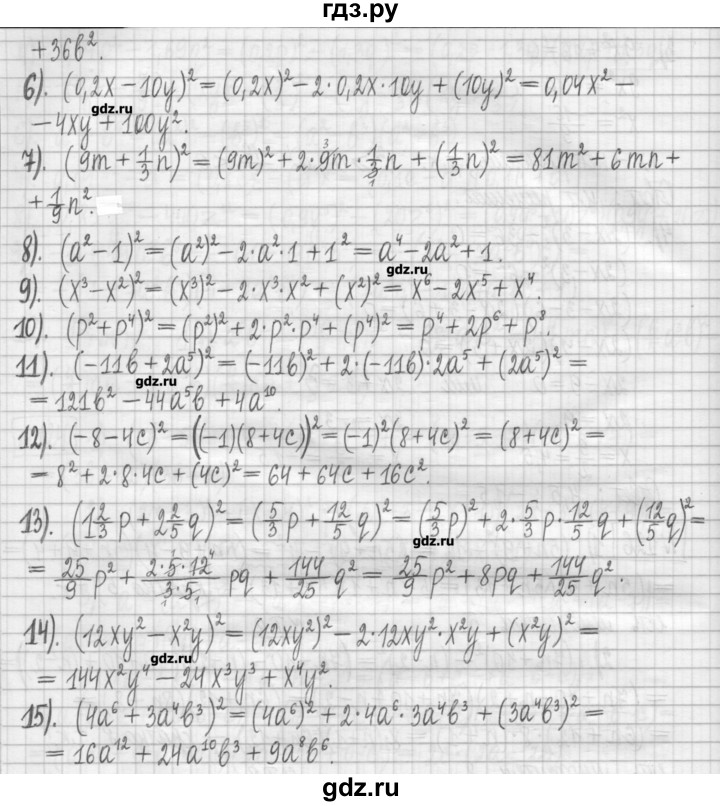 гдз.ру
+36в².
6). (0,2x − 10y)² = (0,2x)² − 2·0,2x·10y + (10y)² = 0,04x² −
gdz.ru
− 4xy + 100y².
7). (9m + 1/3 n)² = (9m)² + 2·9m·1/3 n + (1/3 n)² = 81m² + 6mn +
+ 1/9 n².
8). (a² − 1)² = (a²)² − 2·a²·1 + 1² = a⁴ − 2a² + 1.
gdz.ru
9). (x³ − x²)² = (x³)² − 2·x³·x² + (x²)² = x⁶ − 2x⁵ + x⁴.
10). (p² + p⁴)² = (p²)² + 2·p²·p⁴ + (p⁴)² = p⁴ + 2p⁶ + p⁸.
11). (−11в + 2a⁵)² = (−11в)² + 2·(−11в)·2a⁵ + (2a⁵)² =
gdz.ru
= 121в² − 44a⁵в + 4a¹⁰.
12). (−8 − 4c)² = ((−1)(8 + 4c))² = (−1)²(8 + 4c)² = (8 + 4c)² =
= 8² + 2·8·4c + (4c)² = 64 + 64c + 16c².
13). (1 2/3 p + 2 2/5 q)² = (5/3 p + 12/5 q)² = (5/3 p)² + 2·5/3 p·12/5 q + (12/5 q)² =
gdz.ru
= 25/9 p² + 2·5·12/3·5 pq + 144/25 q² = 25/9 p² + 8pq + 144/25 q².
14). (12xy² − x²y)² = (12xy²)² − 2·12xy²·x²y + (x²y)² =
gdz.ru
= 144x²y⁴ − 24x³y³ + x⁴y².
15). (4a⁶ + 3a⁴в³)² = (4a⁶)² + 2·4a⁶·3a⁴в³ + (3a⁴в³)² =
= 16a¹² + 24a¹⁰в³ + 9a⁸в⁶.
gdz.ru